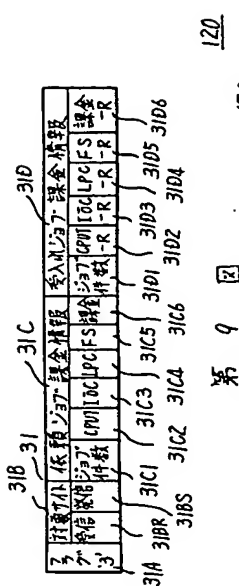 31B 31 31C 31D
対象サイト 依頼ジョブ課金情報 受入れジョブ課金情報
フラグ'3' 発信 ジョブ件数 CPUT IOC LPC FS 課金 ジョブ件数 CPUT-R IOC-R LPC-R FS-R 課金-R
31A 31BR 31BS 31C1 31C2 31C3 31C4 31C5 31C6 31D1 31D2 31D3 31D4 31D5 31D6
第 9 図
120